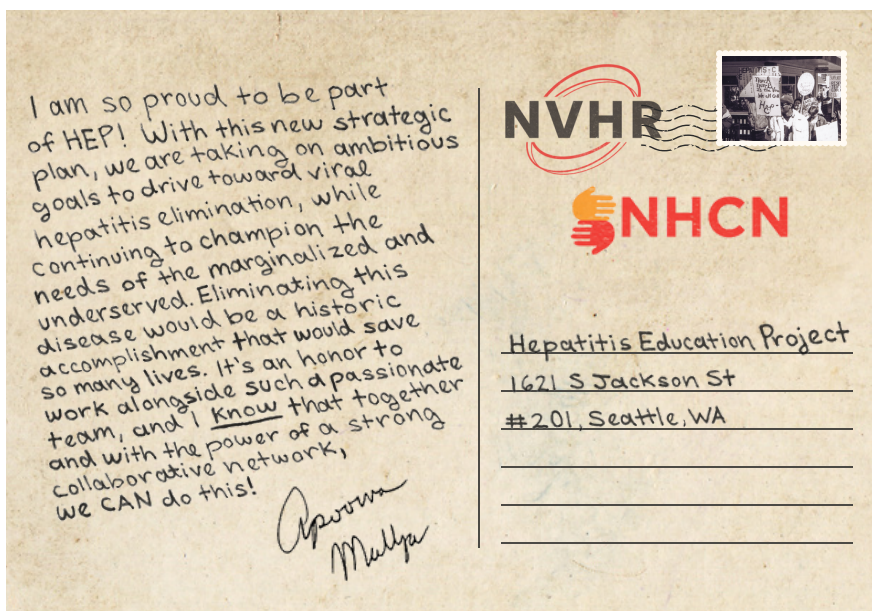 I am so proud to be part
of HEP! With this new strategic
plan, we are taking on ambitious
goals to drive toward viral
hepatitis elimination, while
continuing to champion the
needs of the marginalized and
underserved. Eliminating this
disease would be a historic
accomplishment that would save
so many lives. It's an honor to
work alongside such a passionate
team, and I know that together
and with the power of a strong
collaborative network,
we CAN do this!
Apoorva
Mallya
NVHR
NHCN
Hepatitis Education Project
1621 S Jackson St
#201, Seattle, WA